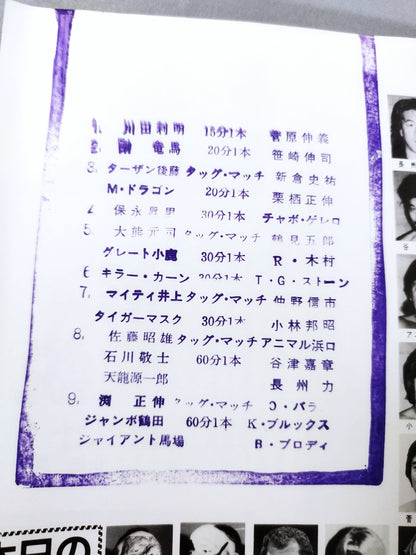 1. 川田利明 15分1本 菅原伸義
2. 剛 竜馬 20分1本 笹崎伸司
3. ターザン後藤 タッグ・マッチ 新倉史祐
M・ドラゴン 20分1本 栗栖正伸
4 保永昇男 30分1本 チャボ・ゲレロ
5. 大熊元司 タッグ・マッチ 鶴見五郎
グレート小鹿 30分1本 R・木村
6 キラー・カーン 30分1本 T・G・ストーン
7. マイティ井上 タッグ・マッチ 仲野信市
タイガーマスク 30分1本 小林邦昭
8. 佐藤昭雄 タッグ・マッチ アニマル浜口
石川敬士 60分1本 谷津嘉章
天龍源一郎 長州 力
9. 渕 正伸 タッグ・マッチ バラ
ジャンボ鶴田 60分1本 K・ブルックス
ジャイアント馬場 B・ブロディ
長
谷
ア
小
本日の